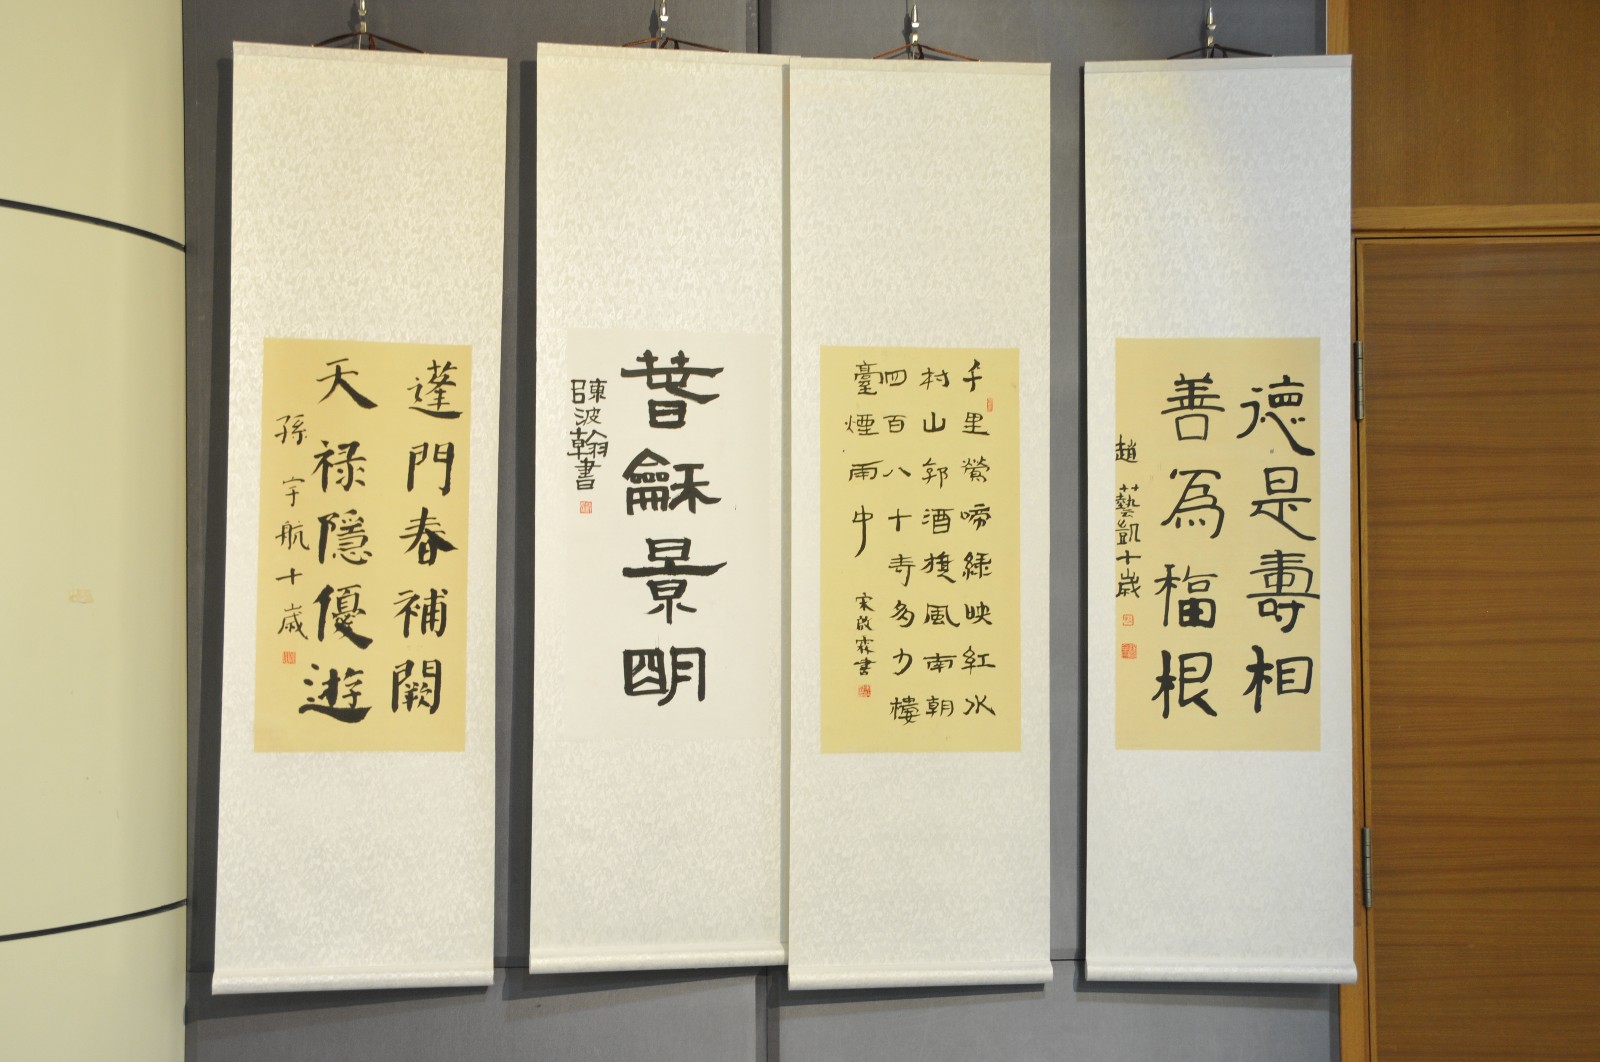 德是壽相
善為福根
趙藝凱十歲
千里鶯啼綠映紅水
村山郭酒旗風南朝
四百八十寺多少樓
臺煙雨中
宋啟霖書
春龢景明
陳波翰書
蓬門春補闕
天禄隱優遊
孫宇航十歲